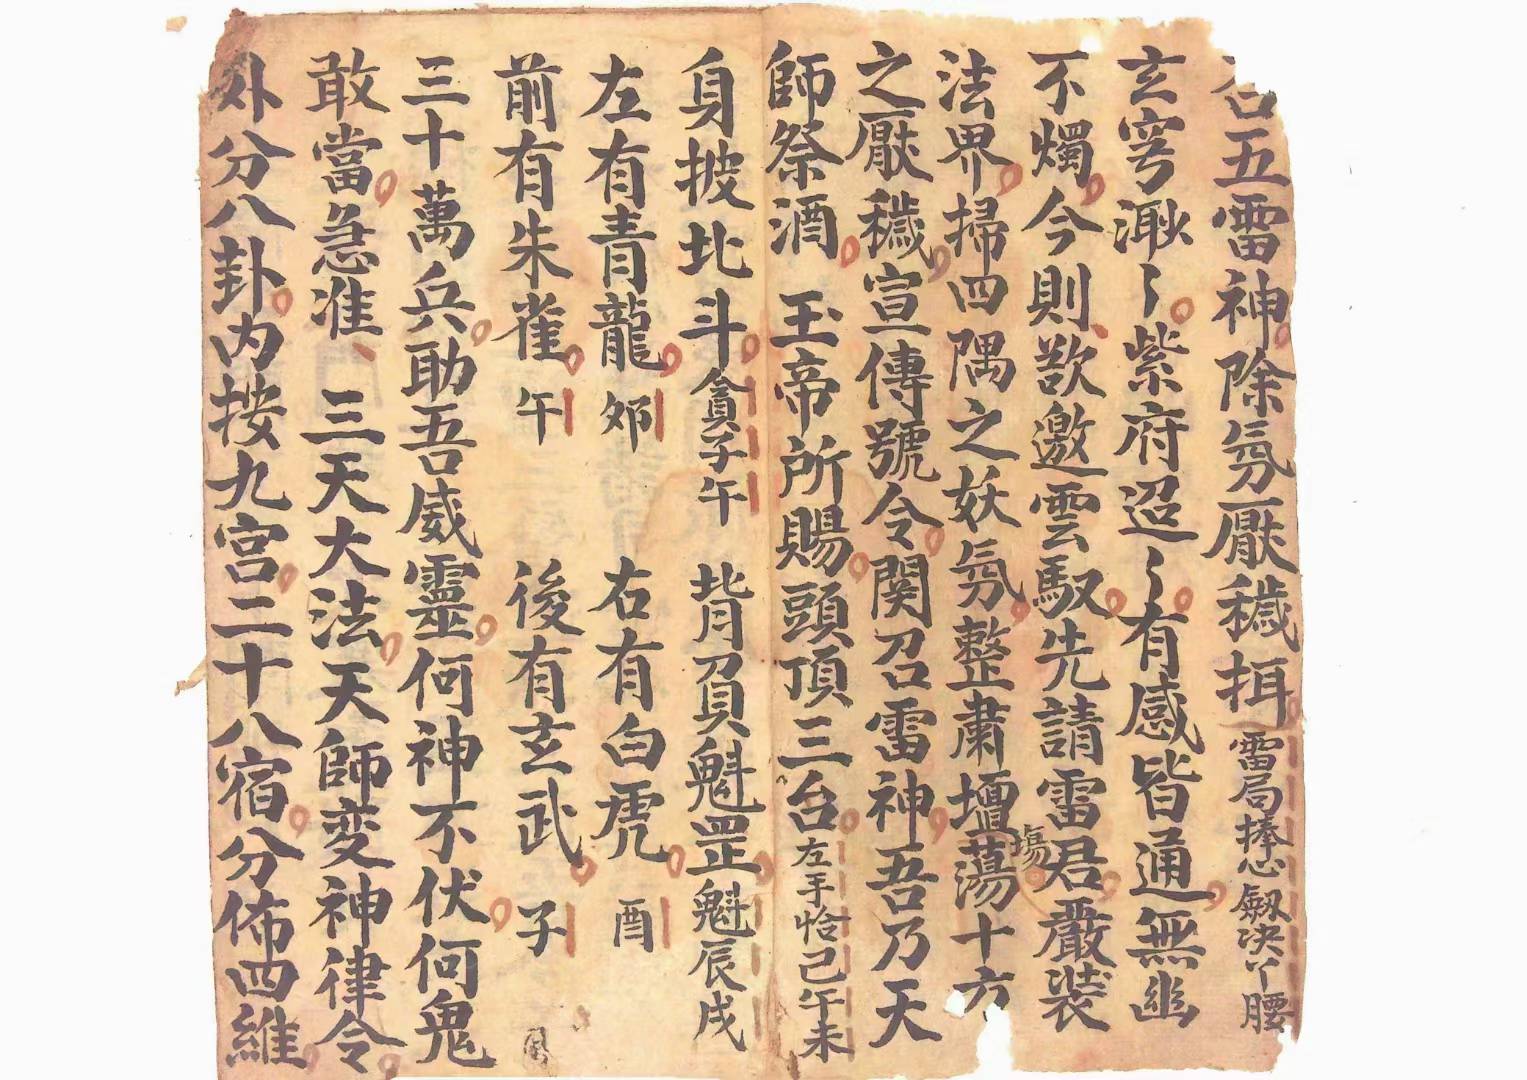 召五雷神除氛厭穢挕雷局捧心劔决丫腰
玄穹漱〻紫府迢〻有感皆通無幽
不燭今則欲邀雲馭先請雷君嚴裝
法界掃四隅之妖氛整肅壇塲蕩十方
之厭穢宣傳號令関召雷神吾乃天
師祭酒 玉帝所賜頭頂三台左手恰己午未
身披北斗貪子午 背負魁罡魁辰戌
左有青龍夘 右有白虎酉
前有朱雀午 後有玄武子
三十萬兵助吾威靈何神不伏何鬼
敢當急准 三天大法天師变神律令
外分八卦内按九宫二十八宿分佈四維